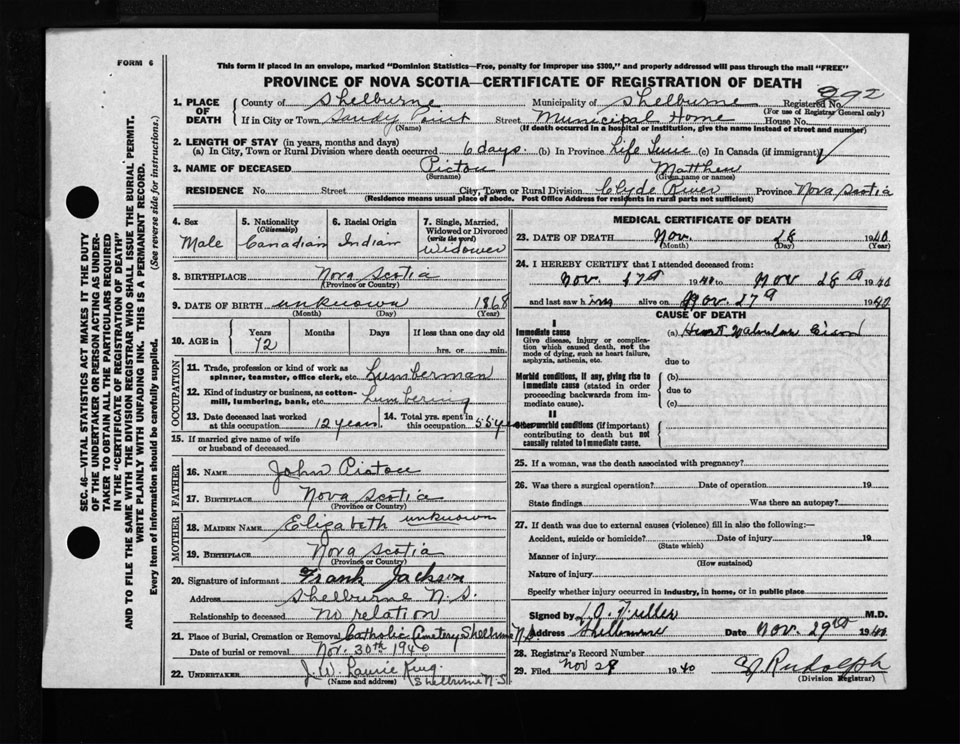 FORM 6
This form if placed in an envelope, marked "Dominion Statistics—Free, penalty for improper use $300," and properly addressed will pass through the mail "FREE"
PROVINCE OF NOVA SCOTIA—CERTIFICATE OF REGISTRATION OF DEATH
292
1. PLACE OF DEATH
County of Shelburne Municipality of Shelburne Registered No.
(For use of Registrar General only)
If in City or Town Sandy Point Street Municipal Home House No.
(Name) (If death occurred in a hospital or institution, give the name instead of street and number)
2. LENGTH OF STAY (in years, months and days)
(a) In City, Town or Rural Division where death occurred 6 days. (b) In Province Life Time (c) In Canada (if immigrant)
3. NAME OF DECEASED Pictou Matthew
(Surname) (Given name or names)
RESIDENCE No. Street City, Town or Rural Division Clyde River Province Nova Scotia
(Residence means usual place of abode. Post Office Address for residents in rural parts not sufficient)
4. Sex
Male
5. Nationality
(Citizenship)
Canadian
6. Racial Origin
Indian
7. Single, Married, Widowed or Divorced
(write the word)
Widower
8. BIRTHPLACE Nova Scotia
(Province or Country)
9. DATE OF BIRTH unknown 1868
(Month) (Day) (Year)
10. AGE in
Years Months Days If less than one day old
72 hrs. or min.
OCCUPATION
11. Trade, profession or kind of work as spinner, teamster, office clerk, etc. Lumberman
12. Kind of industry or business, as cotton-mill, lumbering, bank, etc. Lumbering
13. Date deceased last worked at this occupation 12 years.
14. Total yrs. spent in this occupation 55 years
15. If married give name of wife or husband of deceased
FATHER
16. NAME John Pictou
17. BIRTHPLACE Nova Scotia
(Province or Country)
MOTHER
18. MAIDEN NAME Elizabeth unknown
19. BIRTHPLACE Nova Scotia
(Province or Country)
20. Signature of informant Frank Jackson
Address Shelburne N.S.
Relationship to deceased no relation
21. Place of Burial, Cremation or Removal Catholic Cemetery Shelburne N.S.
Date of burial or removal Nov. 30th 1940
22. UNDERTAKER J. W.
(Name and address) Shelburne N.S
MEDICAL CERTIFICATE OF DEATH
23. DATE OF DEATH Nov. 28 1940
(Month) (Day) (Year)
24. I HEREBY CERTIFY that I attended deceased from:
Nov. 17th 1940 to Nov 28th 1940
and last saw him alive on Nov. 27th 1940
CAUSE OF DEATH
I
Immediate cause
Give disease, injury or complication which caused death, not the mode of dying, such as heart failure, asphyxia, asthenia, etc.
(a) Heart Valvular
due to
Morbid conditions, if any, giving rise to immediate cause (stated in order proceeding backwards from immediate cause).
(b)
due to
(c)
II
Other morbid conditions (if important) contributing to death but not causally related to immediate cause.
25. If a woman, was the death associated with pregnancy?
26. Was there a surgical operation? Date of operation 19
State findings Was there an autopsy?
27. If death was due to external causes (violence) fill in also the following:—
Accident, suicide or homicide? Date of injury 19
(State which)
Manner of injury
(How sustained)
Nature of injury
Specify whether injury occurred in industry, in home, or in public place
Signed by L.O. Fuller M.D.
Address Shelburne Date Nov. 29th 1940
28. Registrar's Record Number
29. Filed Nov 28 1940 Rudolph
(Division Registrar)
SEC. 46—VITAL STATISTICS ACT MAKES IT THE DUTY
OF THE UNDERTAKER OR PERSON ACTING AS UNDER-
TAKER TO OBTAIN ALL THE PARTICULARS REQUIRED
IN THE "CERTIFICATE OF REGISTRATION OF DEATH"
AND TO FILE THE SAME WITH THE DIVISION REGISTRAR WHO SHALL ISSUE THE BURIAL PERMIT.
WRITE PLAINLY WITH UNFADING INK. THIS IS A PERMANENT RECORD.
Every item of information should be carefully supplied. (See reverse side for instructions.)